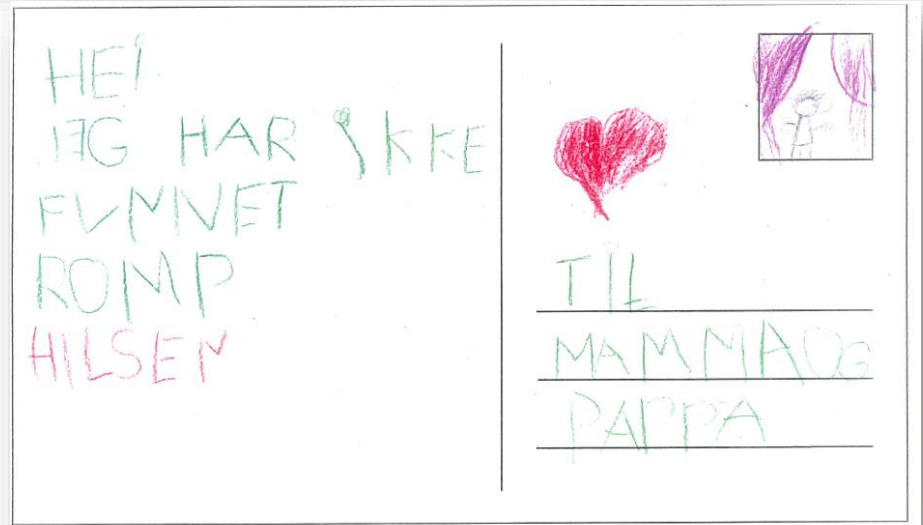 HEI
JEG HAR IKKE
FUNNET
ROMP
HILSEN
TIL
MAMMA OG
PAPPA